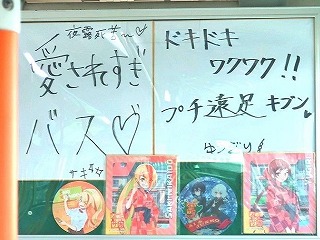 夜露死苦〜♡
愛されすぎ
バス♡
ドキドキ
ワクワク!!
プチ遠足キブン♥
ゆうごり!